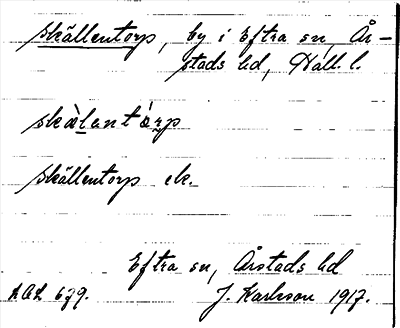 Skällentorp, by i Eftra sn, År-
stads hd, Hall. l.
skälentårp
Skällentorp ek.
Eftra sn, Årstads hd
LAL 679. J. Karlsson 1917.